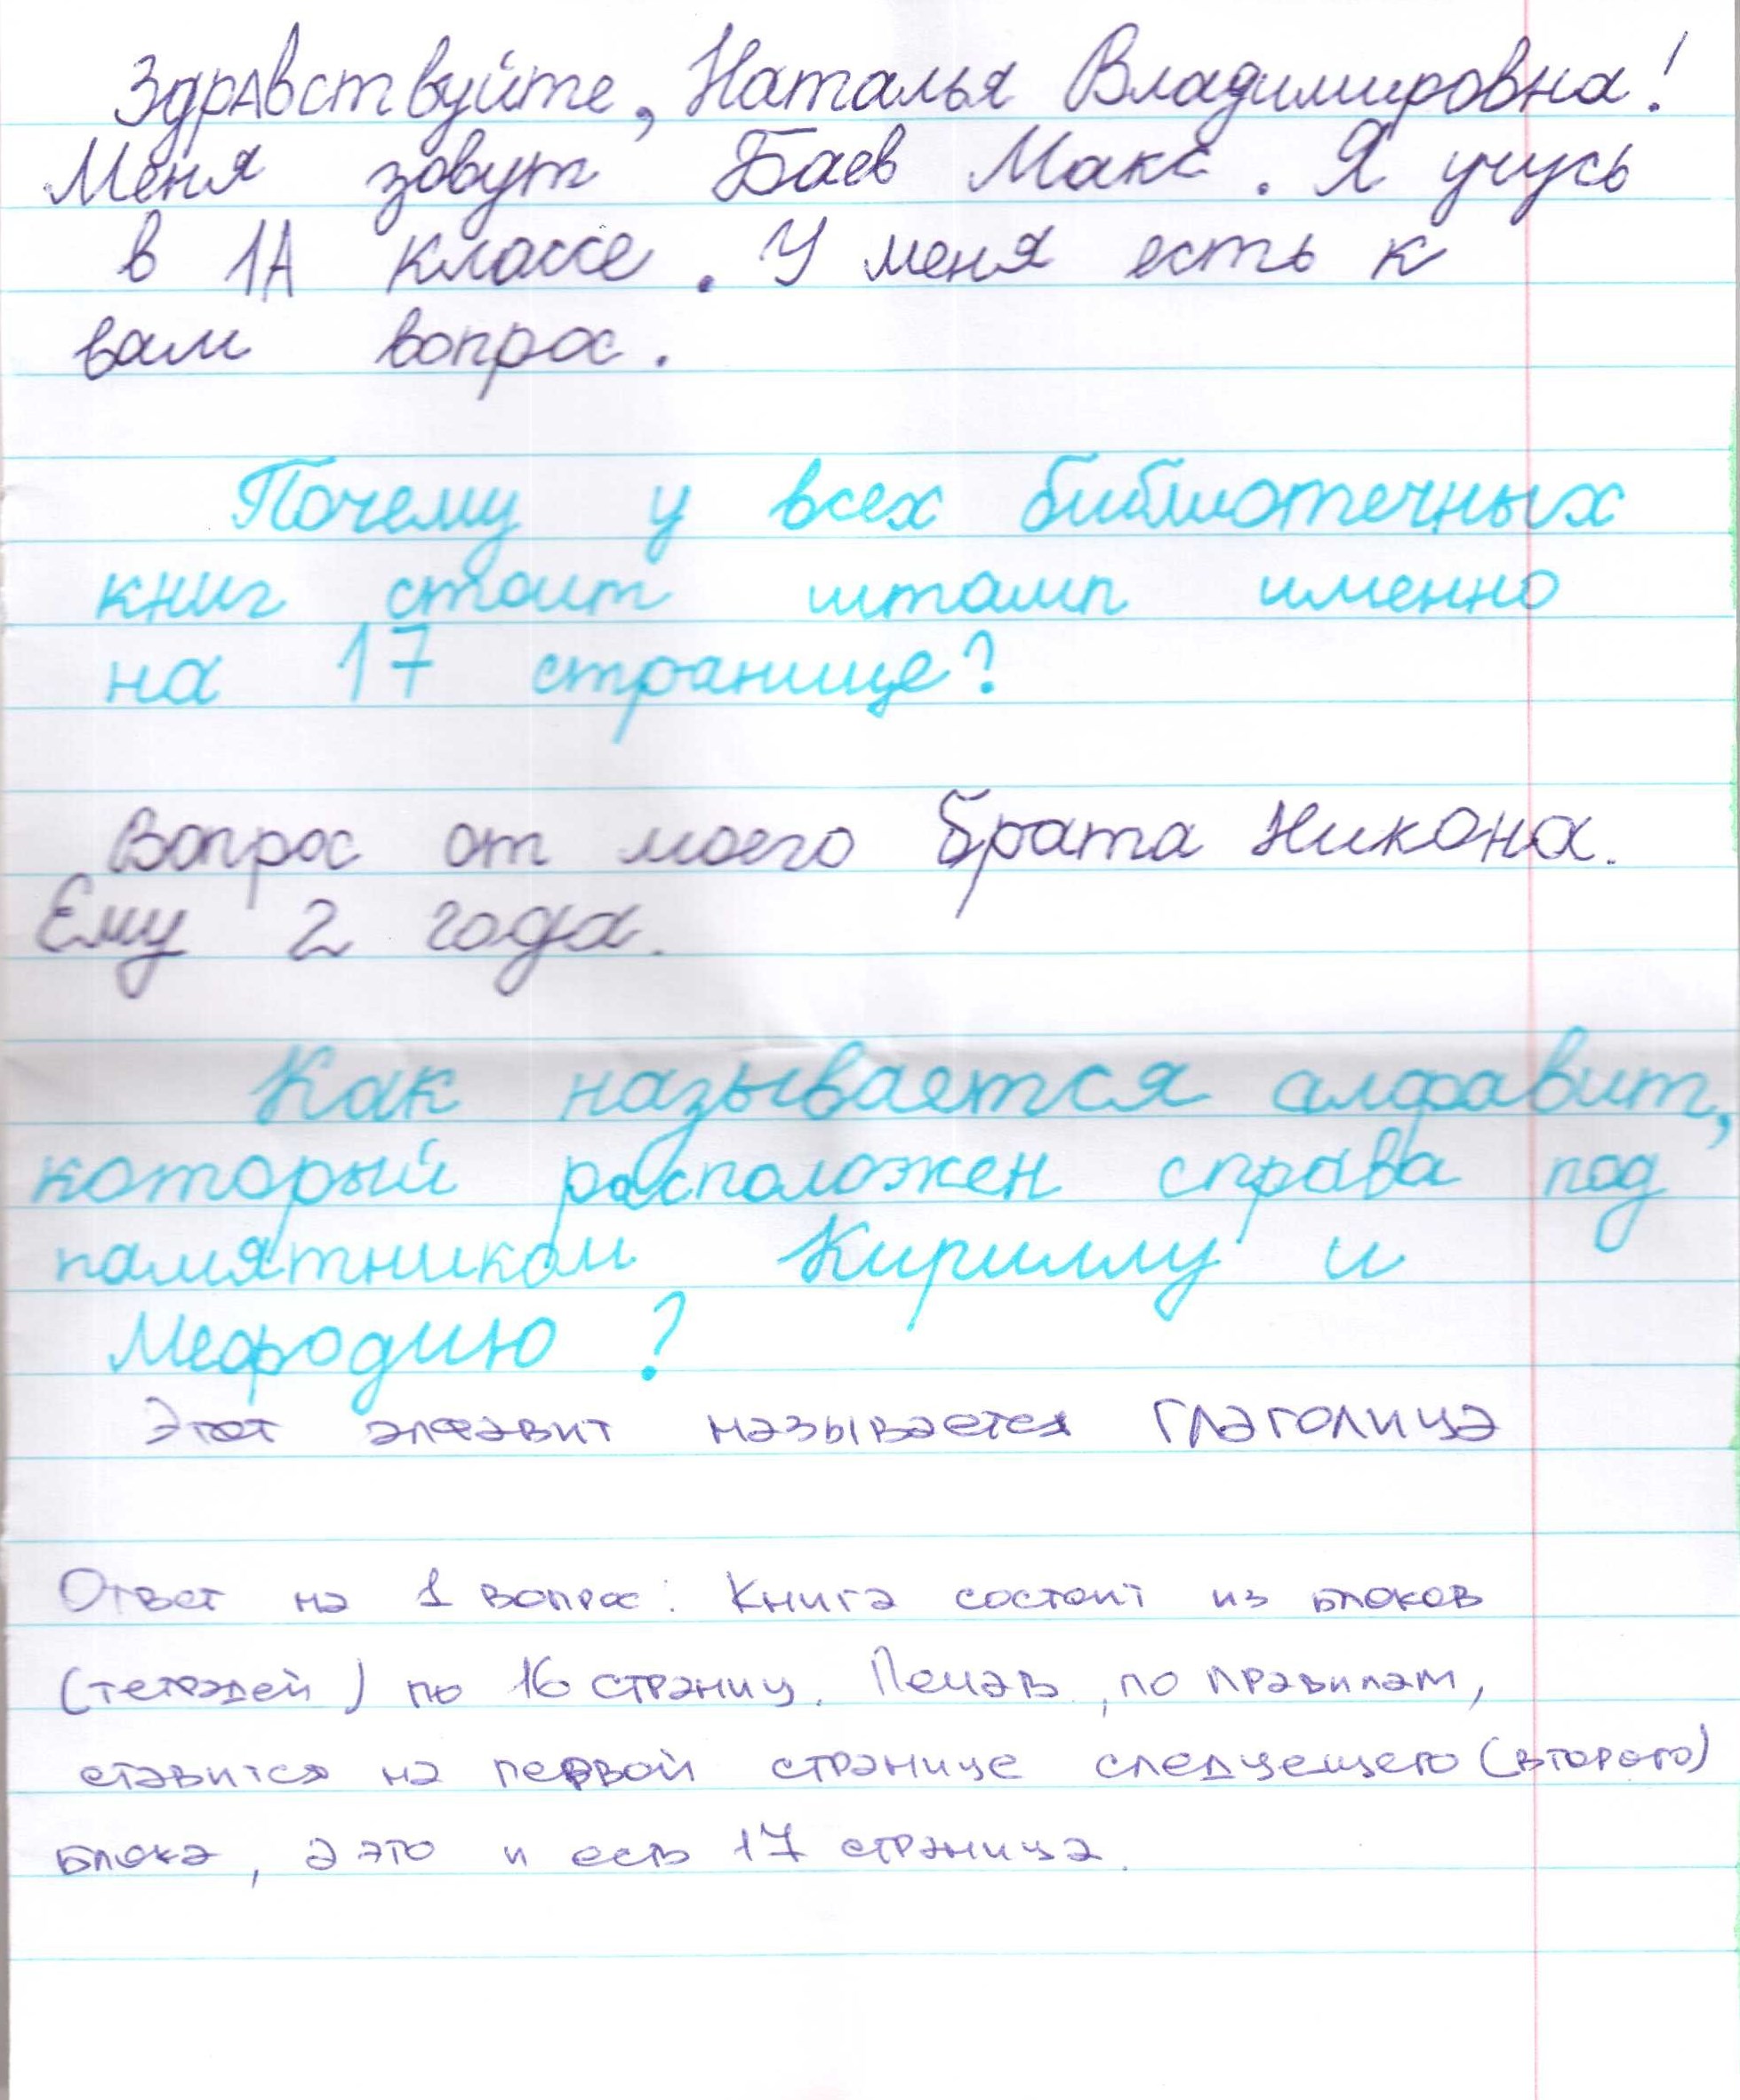 Здравствуйте, Наталья Владимировна!
Меня зовут Баев Макс. Я учусь
в 1А классе. У меня есть к
вам вопрос.
Почему у всех библиотечных
книг стоит штамп именно
на 17 странице?
Вопрос от моего брата Никона.
Ему 2 года.
Как называется алфавит,
который расположен справа под
памятником Кириллу и
Мефодию?
Этот алфавит называется глаголица
Ответ на 1 вопрос: Книга состоит из блоков
(тетрадей) по 16 страниц. Печать, по правилам,
ставится на первой странице следуещего (второго)
блока, а это и есть 17 страница.